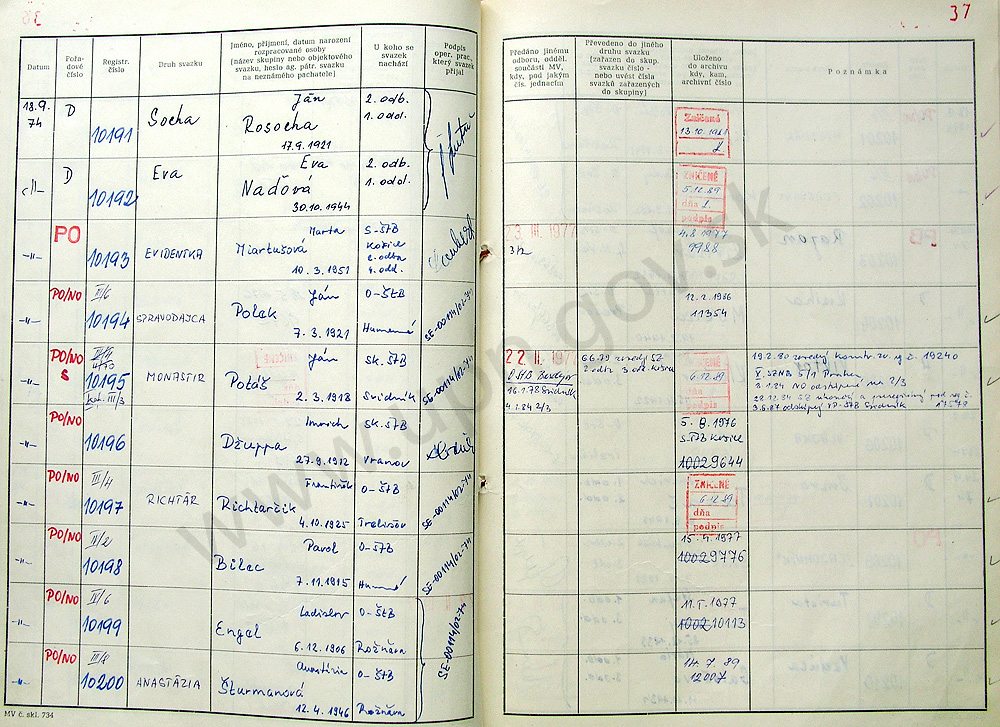 37
Datum
Pořadové číslo
Registr. číslo
Druh svazku
Jméno, příjmení, datum narození
rozpracované osoby
[název skupiny nebo objektového
svazku, heslo ag. pátr. svazku
na neznámého pachatele]
U koho se
svazek
nachází
Podpis
oper. prac.,
který svazek
přijal
Předáno jinému
odboru, odděl.
součásti MV,
kdy, pod jakým
čís. jednacím
Převedeno do jiného
druhu svazku
[zařazen do skup.
svazku číslo -
nebo uvést čísla
svazků zařazených
do skupiny]
Uloženo
do archivu
kdy, kam,
archivní číslo
Poznámka
18.9.
74
D
10191
Socha
Ján
Rosocha
17.9.1921
2. odb.
1. odd.
Zničené
13.10.1981
-"-
D
10192
Eva
Eva
Naďová
30.10.1944
2. odb.
1. odd.
ZNIČENÉ
5.12.89
dňa
podpis
-"-
PO
10193
EVIDENTKA
Marta
Miartušová
10.3.1951
S-ŠtB
Košice
2. odbor
4. odd.
23. III. 1977
4.8.1977
9988
-"-
PO/NO
II/6
10194
SPRAVODAJCA
Ján
Polak
7.3.1921
O-ŠtB
Humenné
SE-00114/02-74
12.2.1986
11354
-"-
PO/NO
S
10195
kat. III/3
MONASTIR
Ján
Potáš
2.3.1918
Sk. ŠTB
Svidník
SE-00114/02-74
22. II. 197
16.1.78 Svidník
4.1.84 2/3
2 odb. 3 odd. Košice
ZNIČENÉ
6.12.89
dňa
podpis
-"-
PO/NO
10196
Imrich
Džuppa
27.9.1912
sk. ŠTB
Vranov
5.8.1976
S-ŠTB Košice
10029644
-"-
PO/NO
III/4
10197
RICHTÁR
František
Richtarčik
4.10.1925
O-ŠTB
Trebišov
SE-00114/02-74
ZNIČENÉ
6.12.89
dňa
podpis
-"-
PO/NO
II/2
10198
Pavol
Bilec
7.11.1915
O-ŠTB
Humenné
SE-00114/02-74
15.4.1977
10029776
-"-
PO/NO
II/6
10199
Ladislav
Engel
6.12.1906
O-ŠtB
Rožňava
SE-00114/02-74
11.5.1977
1002 10113
-"-
PO/NO
III/8
10200
ANASTÁZIA
Anastázia
Šturmanová
12.4.1946
O-ŠtB
Rožňava
14.7.89
12007
MV č. skl. 734
www.upn.gov.sk